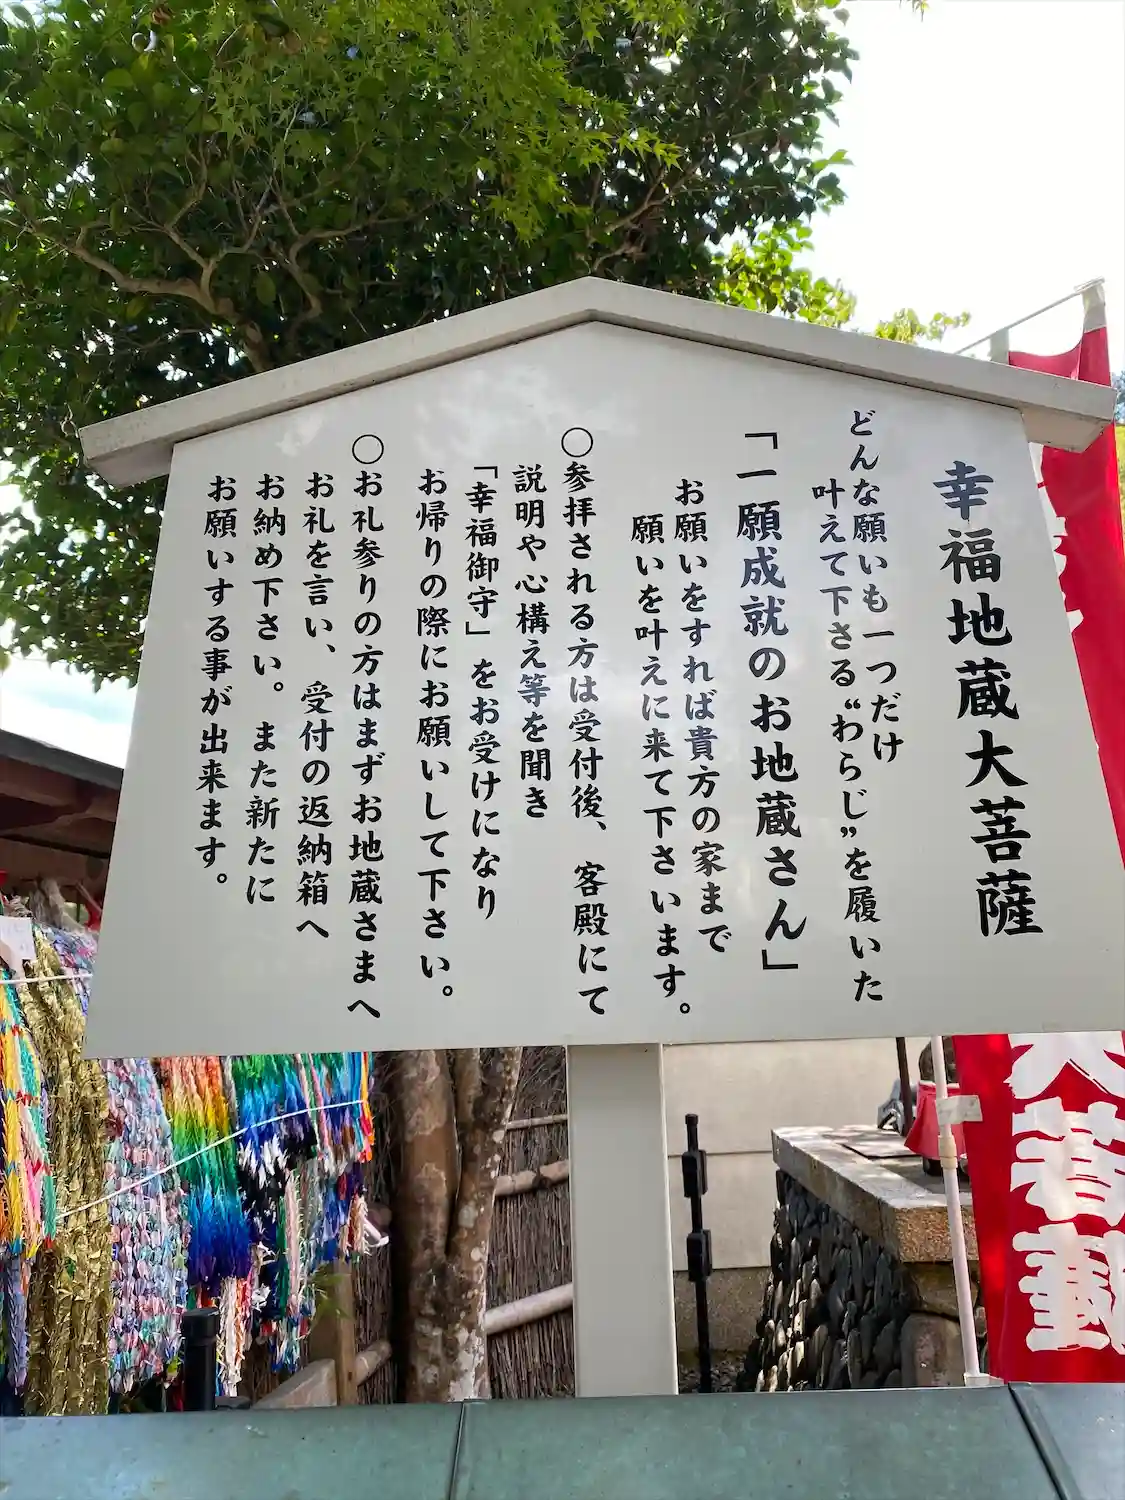 幸福地蔵大菩薩
どんな願いも一つだけ
叶えて下さる“わらじ”を履いた
「一願成就のお地蔵さん」
お願いをすれば貴方の家まで
願いを叶えに来て下さいます。
○参拝される方は受付後、客殿にて
説明や心構え等を聞き
「幸福御守」をお受けになり
お帰りの際にお願いして下さい。
○お礼参りの方はまずお地蔵さまへ
お礼を言い、受付の返納箱へ
お納め下さい。また新たに
お願いする事が出来ます。